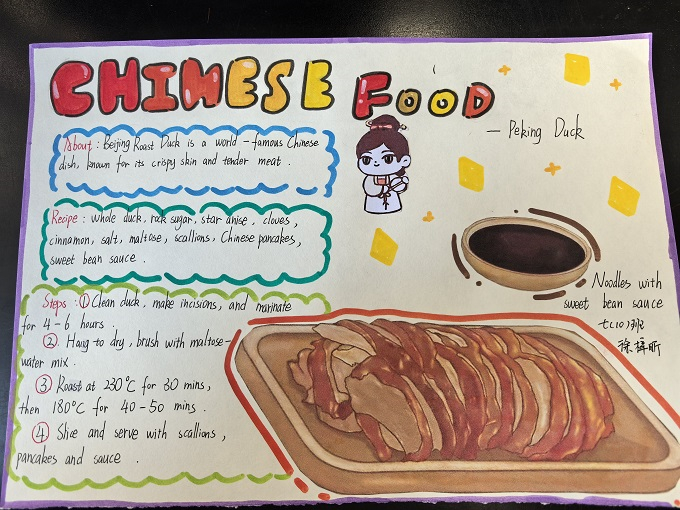 CHINESE FOOD
— Peking Duck
About : Beijing Roast Duck is a world - famous Chinese
dish, known for its crispy skin and tender meat .
Recipe : whole duck, rock sugar, star anise, cloves,
cinnamon, salt, maltose, scallions, Chinese pancakes,
sweet bean sauce .
Steps : ① Clean duck, make incisions, and marinate
for 4-6 hours .
② Hang to dry, brush with maltose-
water mix .
③ Roast at 230°C for 30 mins,
then 180°C for 40-50 mins .
④ Slice and serve with scallions,
pancakes and sauce .
Noodles with
sweet bean sauce
七(10)班
徐梓昕